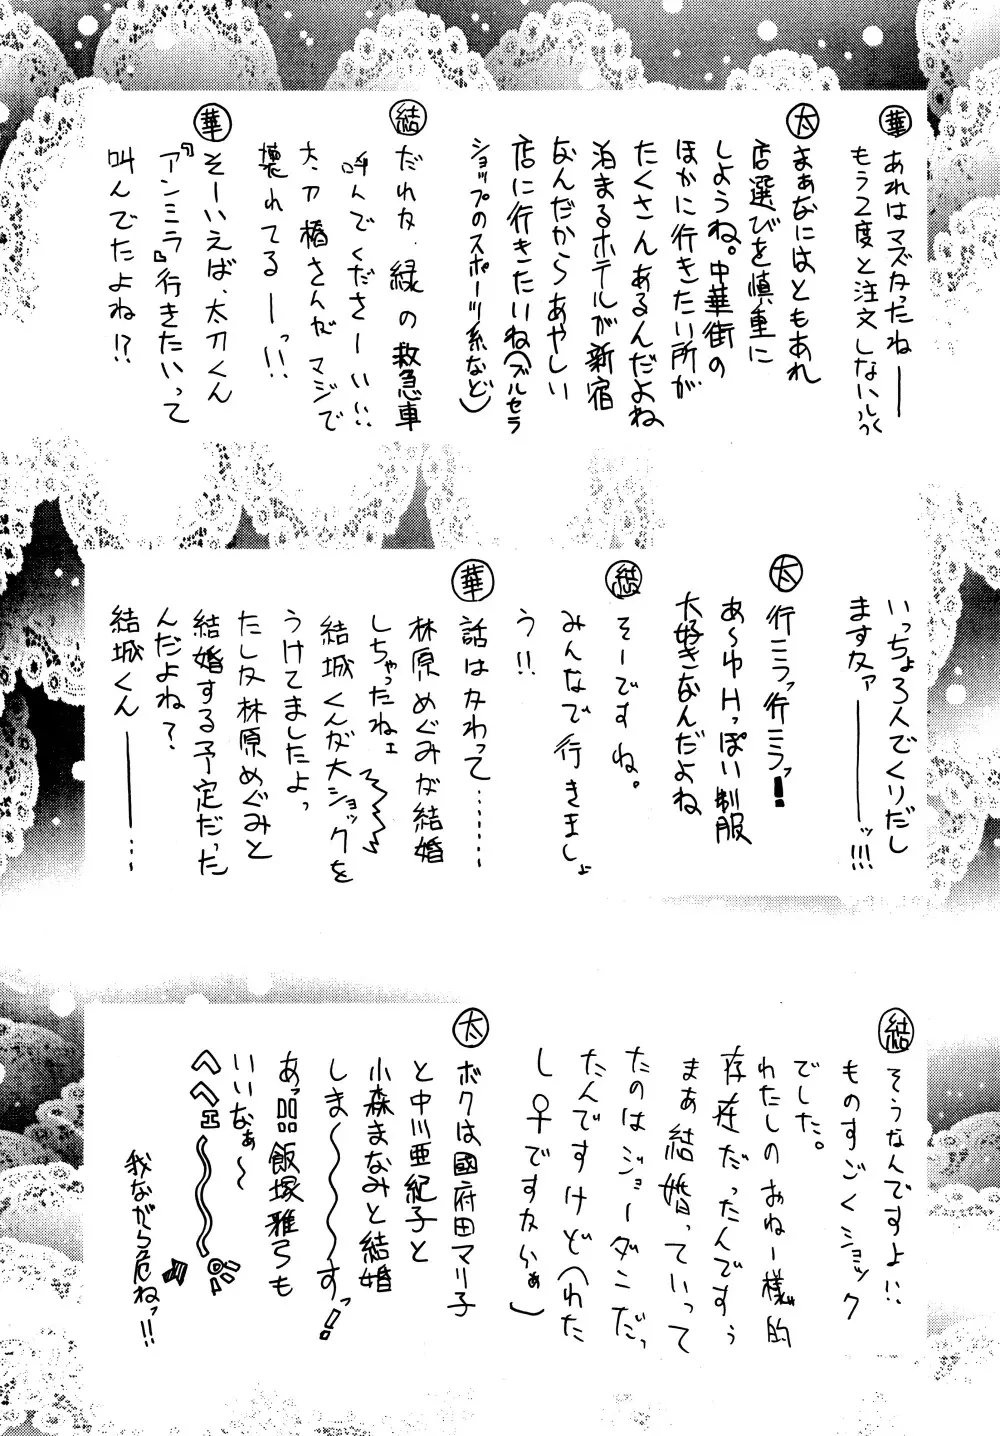 華 あれはマズかったねーー
もう2度と注文しないルルっく
太 まぁなにはともあれ
店選びを慎重に
しようね。中華街の
ほかに行きたい所が
たくさんあるんだよね
泊まるホテルが新宿
なんだからあやしい
店に行きたいね(ブルセラ
ショップのスポーツ系など)
結 だれか、緑の救急車
呼んでくださーいい
太刀椿さんがマジで
壊れてるーっ!!
華 そーいえば、太刀くん
『アンミラ』行きたいって
叫んでたよね!?
いっちょ3人でくりだし
ますかァーーーッ!!!
太 行こうっ行こうっ!
あ〜ゆHっぽい制服
大好きなんだよね
結 そーですね。
みんなで行きましょ
う!!
華 話はかわって……
林原めぐみが結婚
しちゃったねェ
結城くんが大ショックを
うけてましたよっ
たしか林原めぐみと
結婚する予定だった
んだよね?
結城くんーーー…
結 そうなんですよ!!
ものすごくショック
でした。
わたしのおねー様的
存在だったんですぅ
まぁ結婚っていって
たのはジョーダンだっ
たんですけど(わた
し♀ですからぁ)
太 ボクは國府田マリ子
と中川亜紀子と
小森まなみと結婚
しま〜〜〜すっ!
あっ!!飯塚雅弓も
いいなぁ〜
へへェ〜〜〜
我ながら危ねっ!!